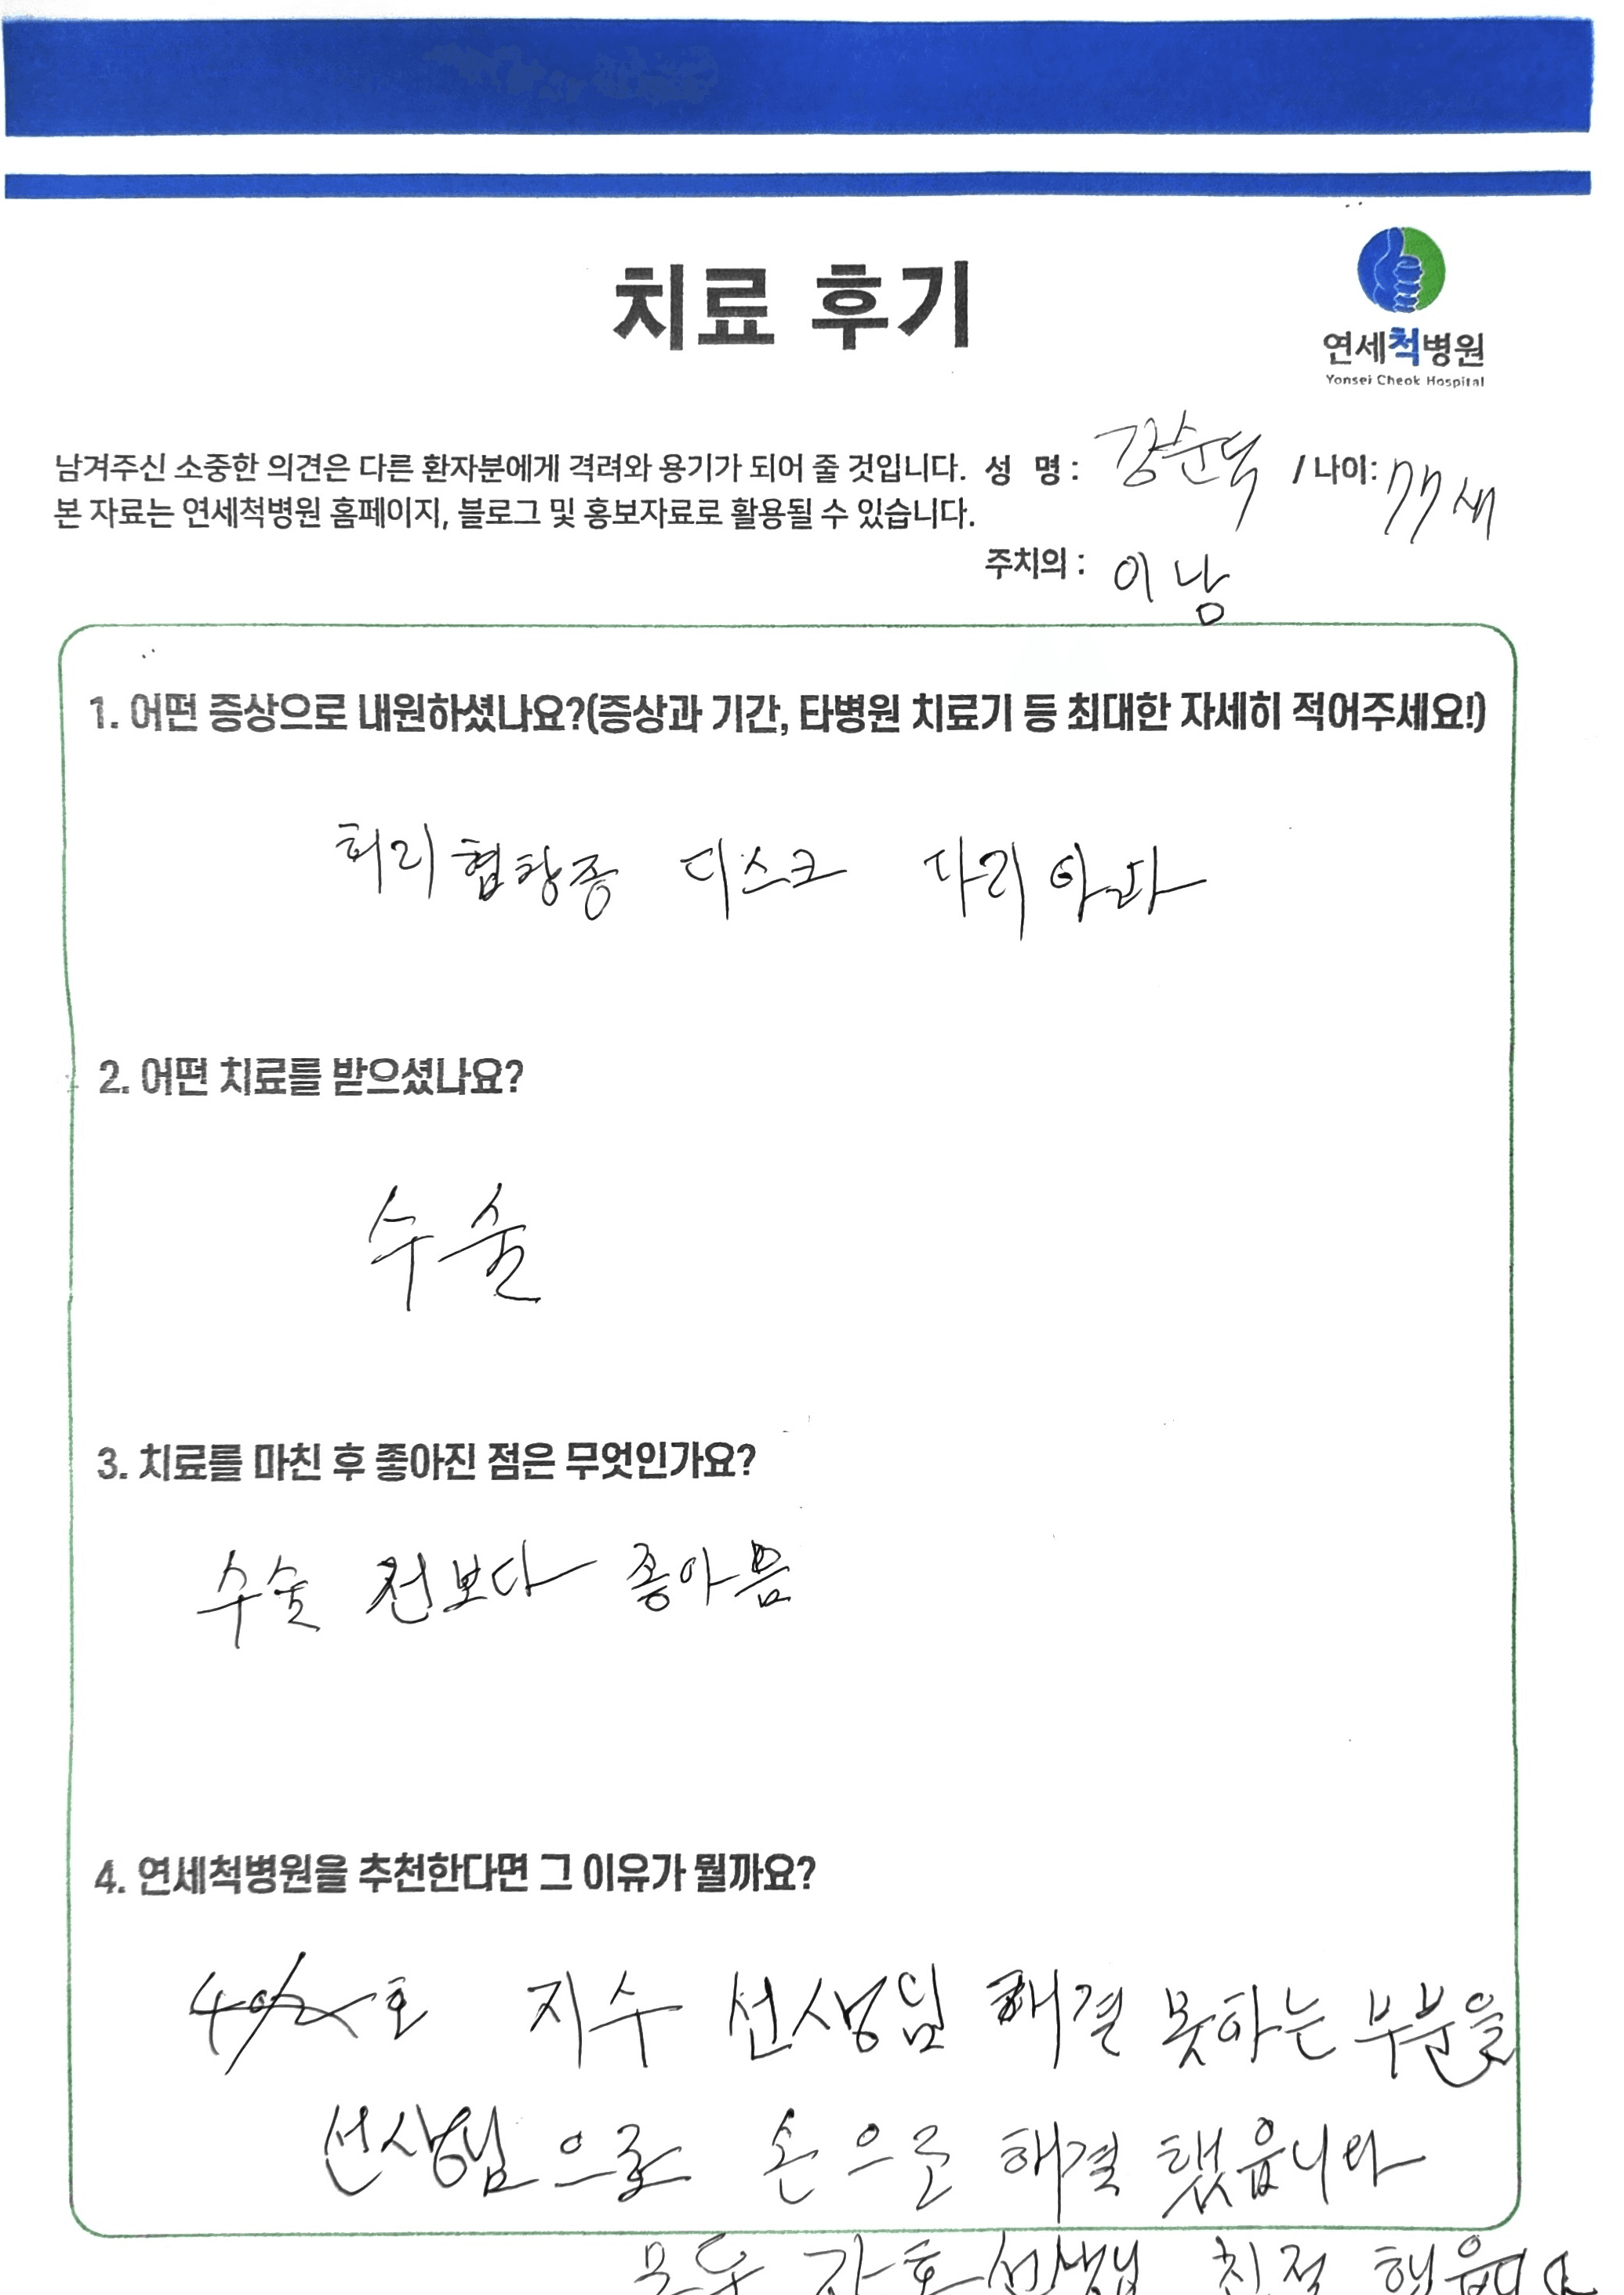 치료 후기
연세척병원
Yonsei Cheok Hospital
남겨주신 소중한 의견은 다른 환자분에게 격려와 용기가 되어 줄 것입니다. 성 명 : 강순덕 / 나이: 77세
본 자료는 연세척병원 홈페이지, 블로그 및 홍보자료로 활용될 수 있습니다.
주치의 : 이남
1. 어떤 증상으로 내원하셨나요?(증상과 기간, 타병원 치료기 등 최대한 자세히 적어주세요!)
허리 협창증 디스크 다리 아파
2. 어떤 치료를 받으셨나요?
수술
3. 치료를 마친 후 좋아진 점은 무엇인가요?
수술 전보다 좋아음
4. 연세척병원을 추천한다면 그 이유가 뭘까요?
호 지수 선생님 해결 못하는 부분을
선생님 으로 손으로 해결 했읍니다
모두 간호 선생님 친절